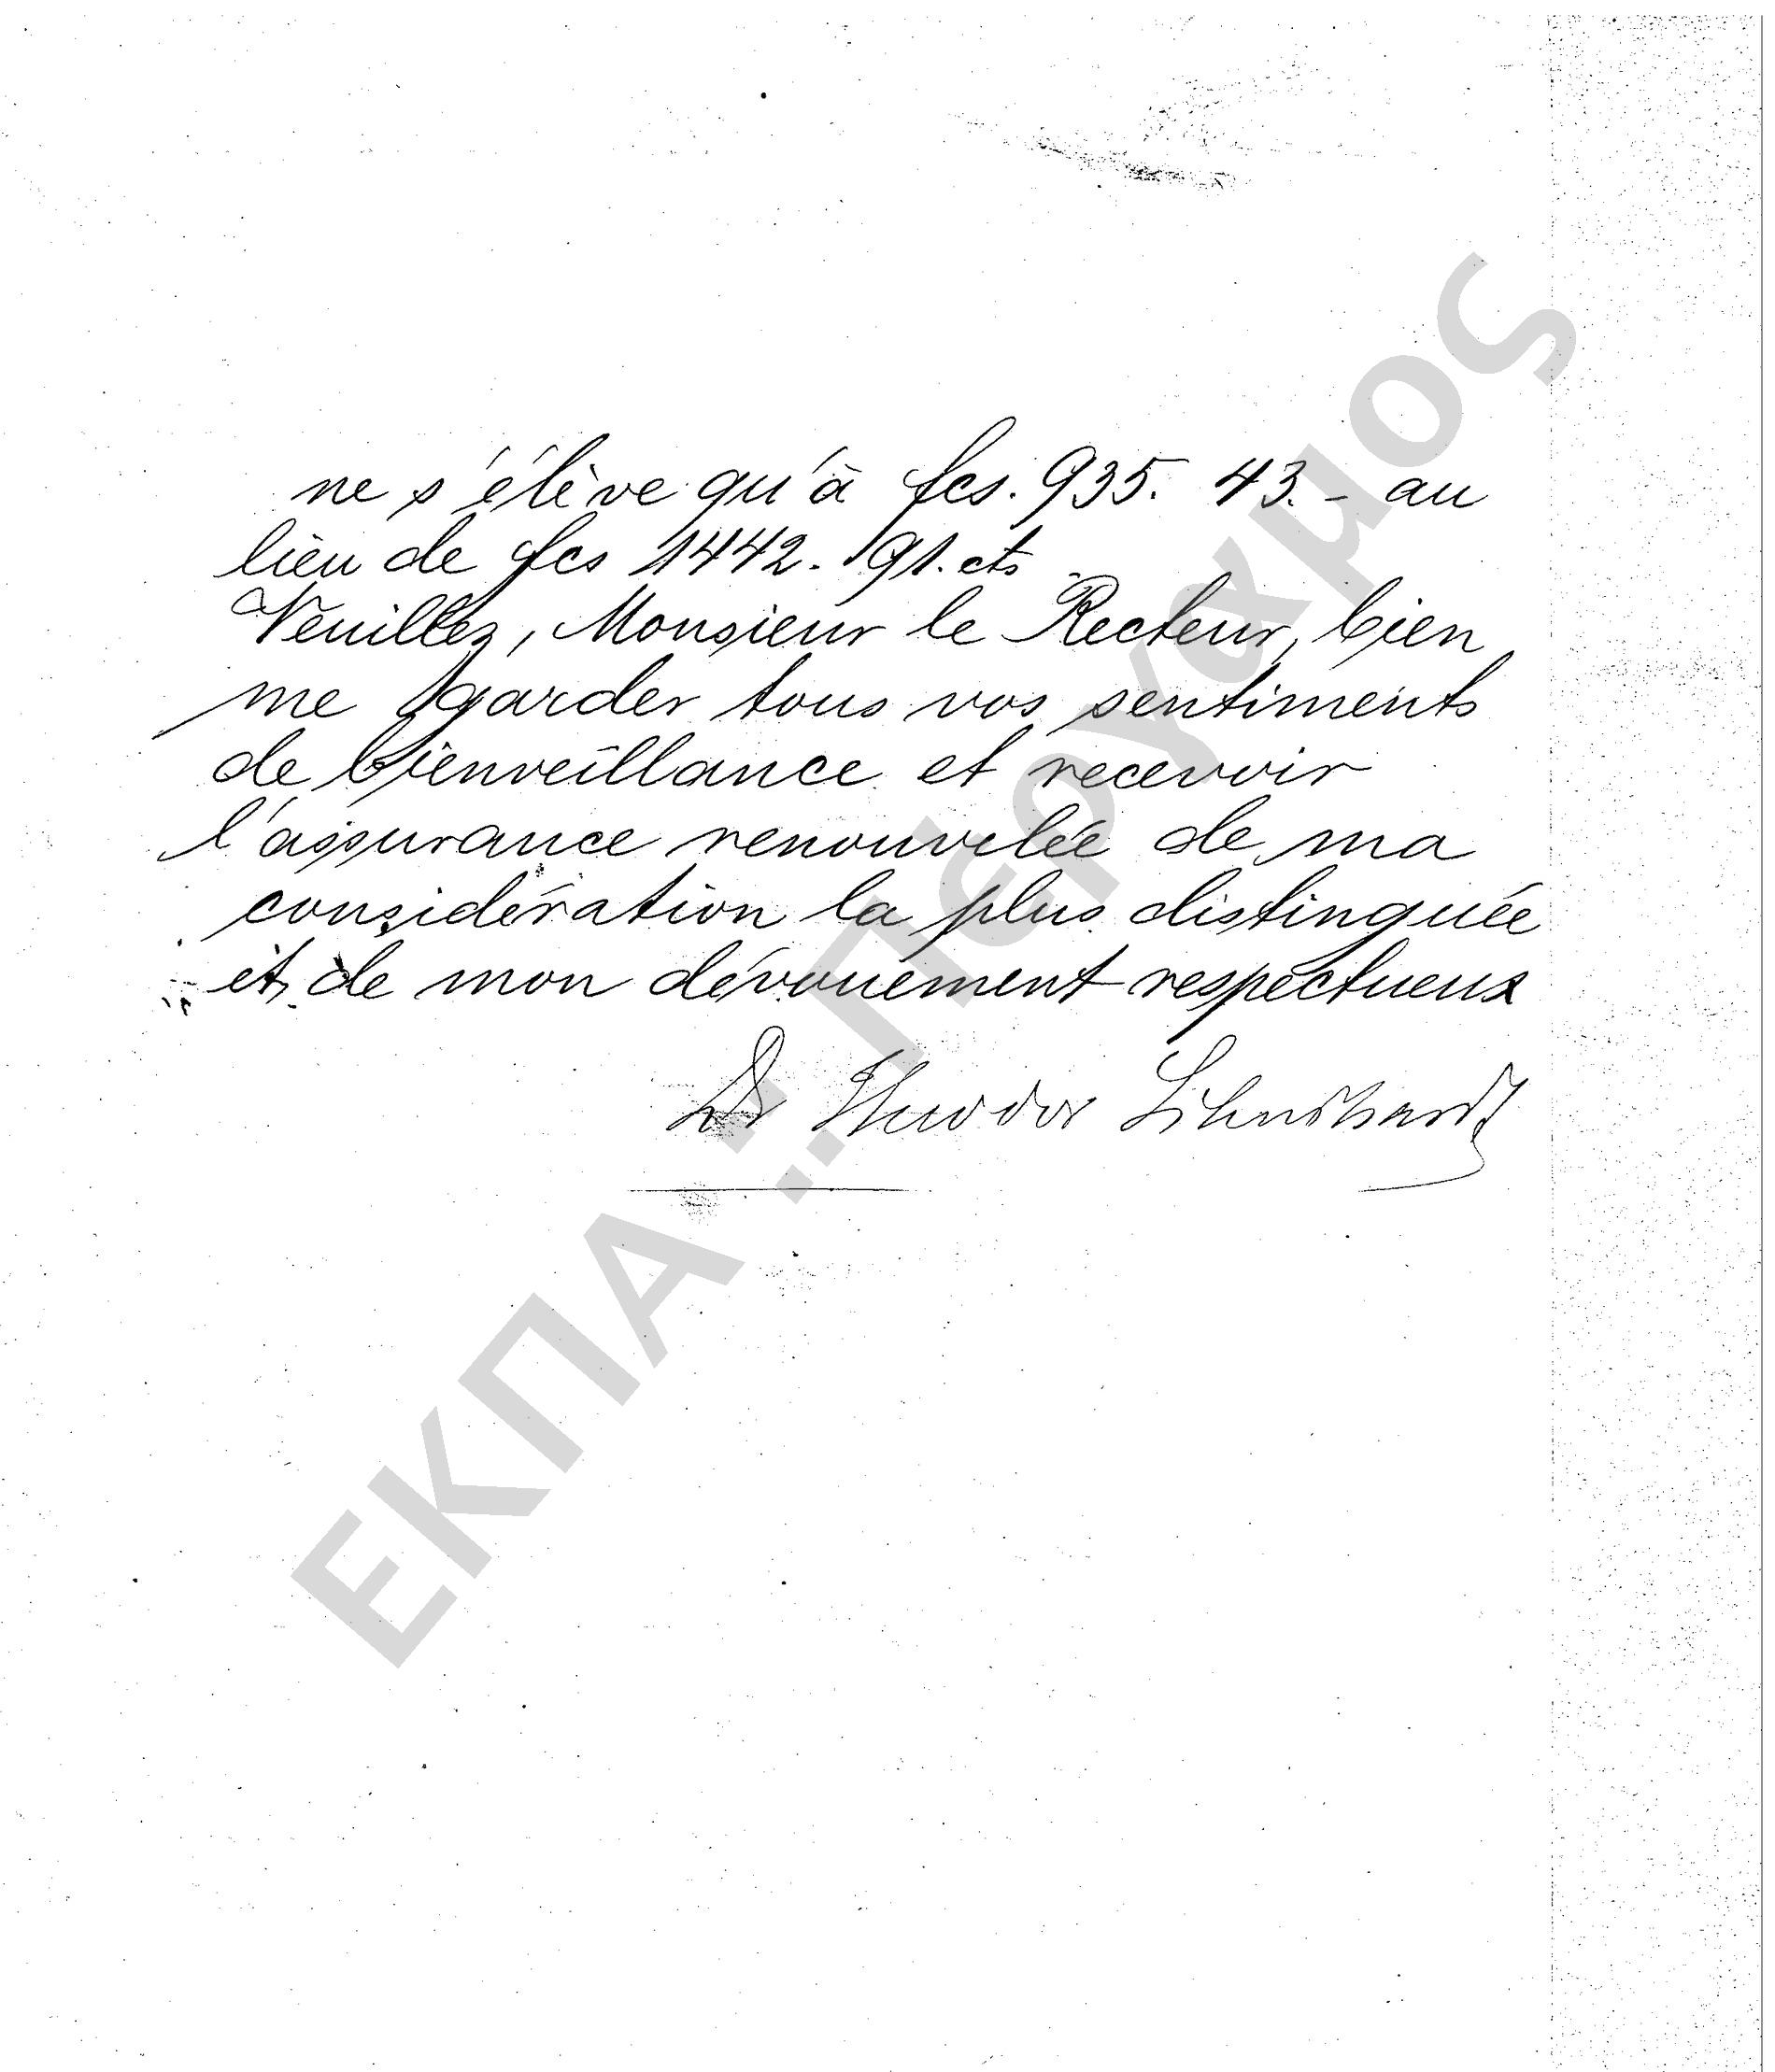 ne s'élève qu'à fcs. 935. 43. - au
lieu de fcs 1442. 91. cts
Veuillez, Monsieur le Recteur, bien
me garder tous vos sentiments
de bienveillance et recevoir
l'assurance renouvelée de ma
considération la plus distinguée
et de mon dévouement respectueux
Dr Theodor
ΕΚΠΑ "Πέργαμος"